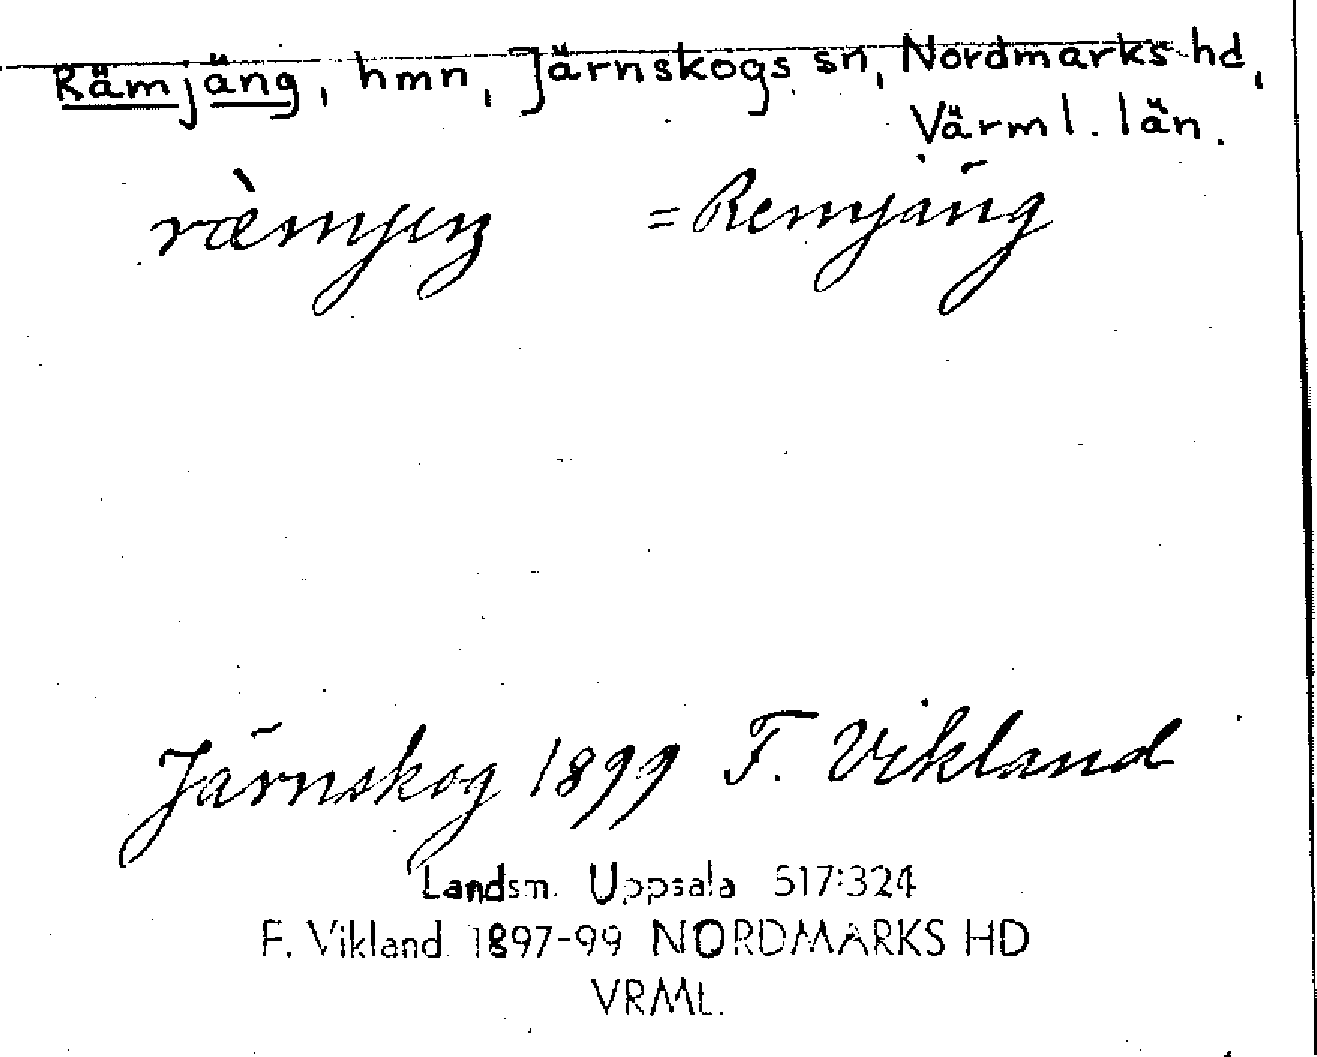 Rämjäng, hmn, Järnskogs sn, Nordmarks hd,
Värml. län.
ræ̀mjeŋ = Remjäng
Järnskog 1899 F. Vikland
Landsm. Uppsala 517:324
F. Vikland 1897-99 NORDMARKS HD
VRML.